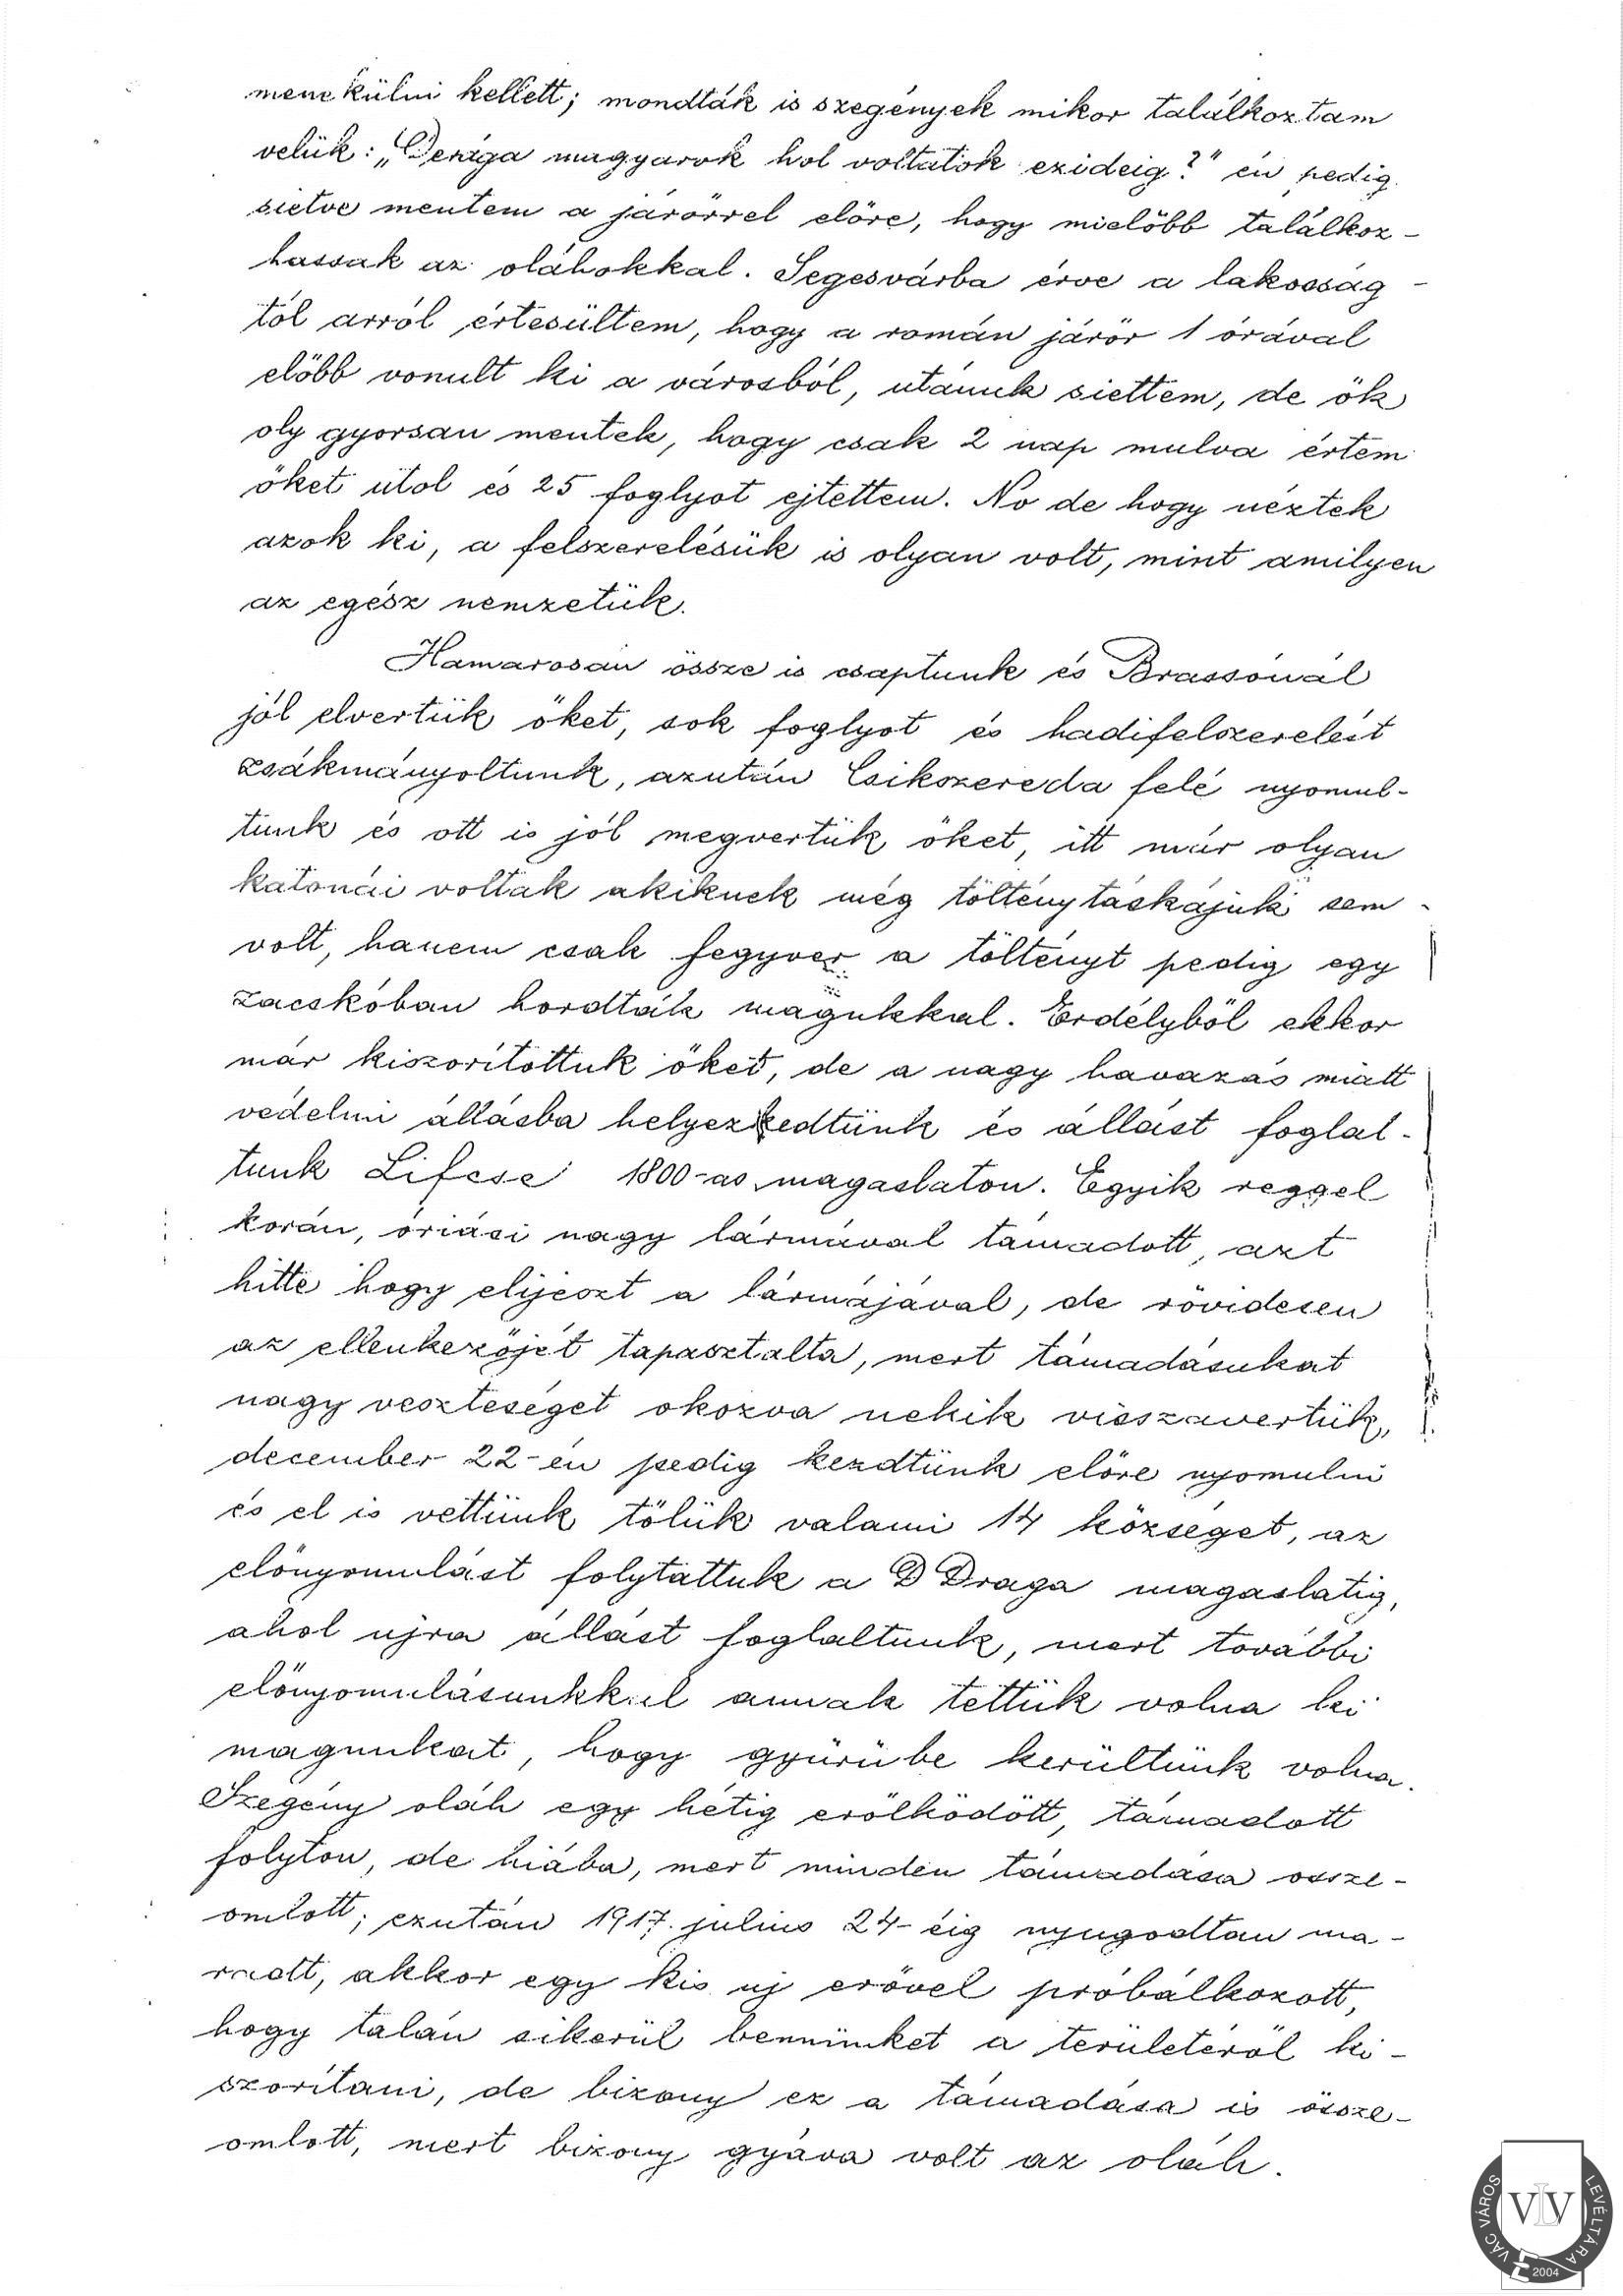 menekülni kellett; mondták is szegények mikor találkoztam
velük: „Derága magyarok hol voltatok ezideig?" én pedig
sietve mentem a járőrrel előre, hogy mielőbb találkoz-
hassak az oláhokkal. Segesvárba érve a lakosság-
tól arról értesültem, hogy a román járőr 1 órával
előbb vonult ki a városból, utánuk siettem, de ők
oly gyorsan mentek, hogy csak 2 nap mulva értem
őket utol és 25 foglyot ejtettem. No de hogy néztek
azok ki, a felszerelésük is olyan volt, mint amilyen
az egész nemzetük.
Hamarosan össze is csaptunk és Brassónál
jól elvertük őket, sok foglyot és hadifelszerelést
zsákmányoltunk, azután Csikszereda felé nyomul-
tunk és ott is jól megvertük őket, itt már olyan
katonái voltak akiknek még tölténytáskájuk sem
volt, hanem csak fegyver a töltényt pedig egy
zacskóban hordták magukkal. Erdélyből ekkor
már kiszorítottuk őket, de a nagy havazás miatt
védelmi állásba helyezkedtünk és állást foglal-
tunk Lifcse 1800-as magaslaton. Egyik reggel
korán, óriási nagy lármával támadott, azt
hitte hogy elijeszt a lármájával, de rövidesen
az ellenkezőjét tapasztalta, mert támadásukat
nagy veszteséget okozva nekik visszavertük,
december 22-én pedig kezdtünk előre nyomulni
és el is vettünk tőlük valami 14 községet, az
előnyomulást folytattuk a D Draga magaslatig,
ahol ujra állást foglaltunk, mert további
előnyomulásunkkal annak tettük volna ki
magunkat, hogy gyürübe kerültünk volna.
Szegény oláh egy hétig erőlködött, támadott
folyton, de hiába, mert minden támadása össze-
omlott; ezután 1917. julius 24-éig nyugodtan ma-
radt, akkor egy kis uj erővel próbálkozott,
hogy talán sikerül bennünket a területéről ki-
szorítani, de bizony ez a támadása is össze-
omlott, mert bizony gyáva volt az oláh.
VÁC VÁROS LEVÉLTÁRA
VLV
2004